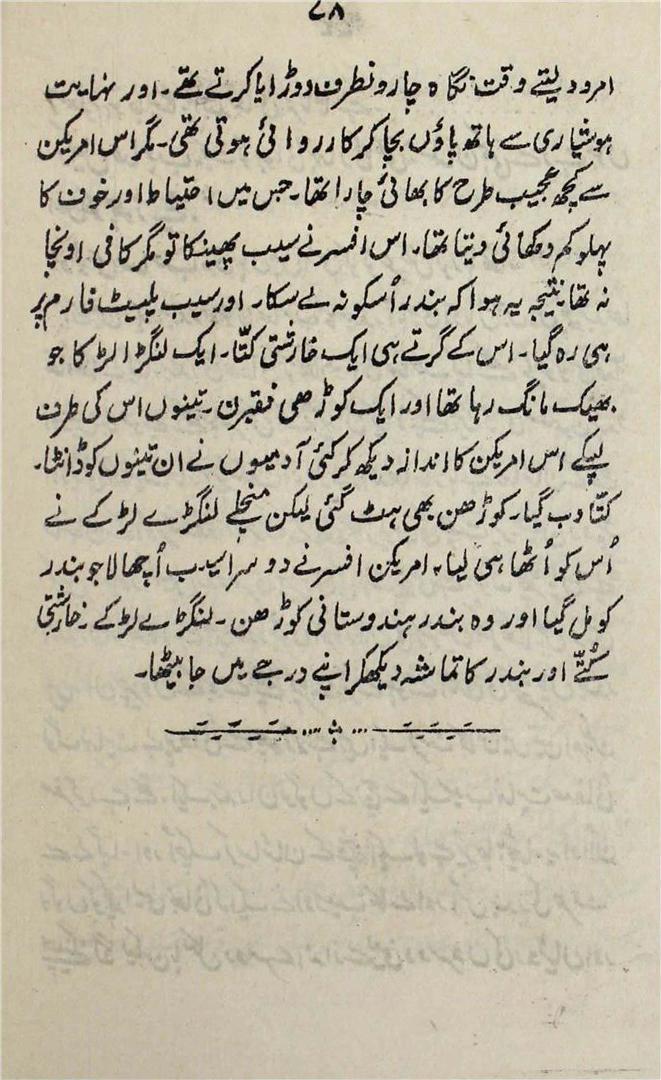 ۷۸
امرود لیتے وقت نگاہ چارونطرف دوڑایا کرتے تھے۔ اور نہایت
ہوشیاری سے ہاتھ پاؤں بچا کر کارروائی ہوتی تھی۔ مگر اس امریکن
سے کچھ عجیب طرح کا بھائی چارا تھا۔ جس میں احتیاط اور خوف کا
پہلو کم دکھائی دیتا تھا۔ اس افسر نے سیب پھینکا تو مگر کافی اونچا
نہ تھا نتیجہ یہ ہوا کہ بندر اُسکو نہ لے سکا۔ اور سیب پلیٹ فارم پر
ہی رہ گیا۔ اس کے گرتے ہی ایک خارشتی کتّا۔ ایک لنگڑا لڑکا جو
بھیک مانگ رہا تھا اور ایک کوڑھی فقیرن۔ تینوں اس کی طرف
لپکے اس امریکن کا اندازہ دیکھ کر کئی آدمیوں نے ان تینوں کو ڈانٹا۔
کتّا دب گیا۔ کوڑھن بھی ہٹ گئی لیکن منچلے لنگڑے لڑکے نے
اُس کو اُٹھا ہی لیا۔ امریکن افسر نے دوسرا سیب اُچھالا جو بندر
کو مل گیا اور وہ بندر ہندوستانی کوڑھن۔ لنگڑے لڑکے۔ خارشتی
کُتّے اور بندر کا تماشہ دیکھکر اپنے درجے میں جا بیٹھا۔